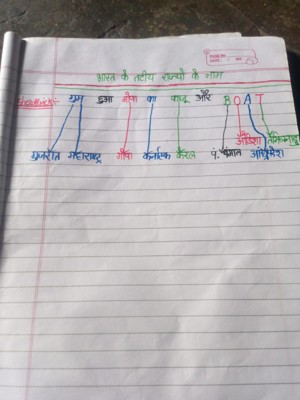 भारत के तटीय राज्यों के नाम
गुम हुआ गोवा का काजू और BOAT
ओडिशा तमिलनाडु
गुजरात महाराष्ट्र गोवा कर्नाटक केरल पं. बंगाल आंध्रप्रदेश